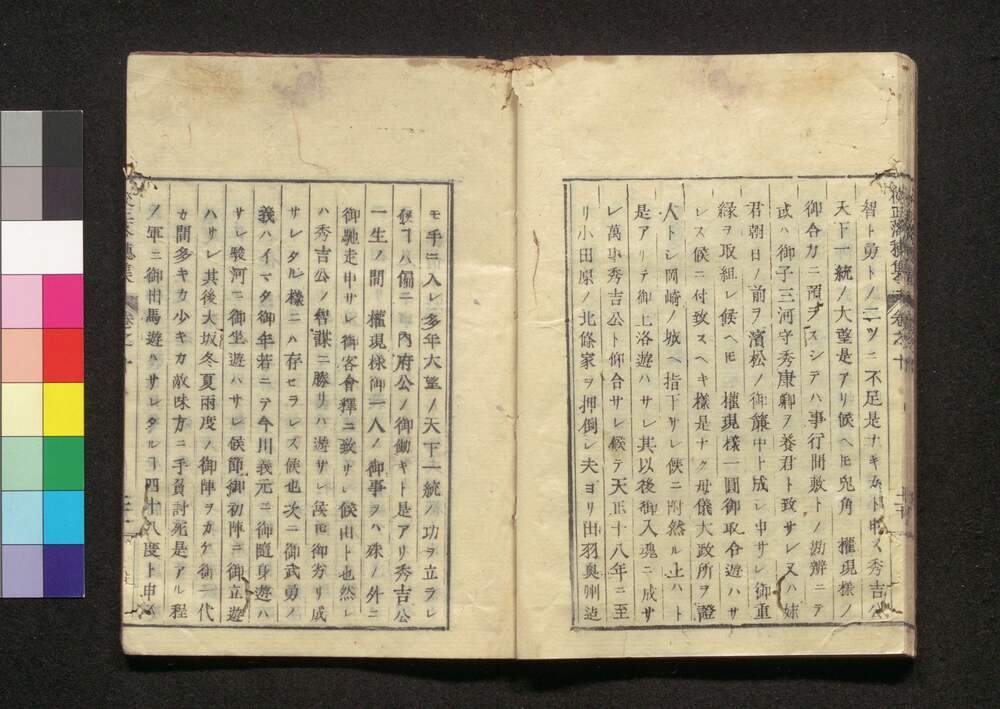 智ト勇トノ二ツニ不足是ナキカト申ス秀吉公
天下一統ノ大望是アリ候ヘ𪜈兎角　權現様ノ
御合力ニ預ラスシテハ事行間敷トノ勘辨ニテ
或ハ御子三河守秀康卿ヲ養君ト致サレ又ハ妹
君朝日ノ前ヲ濱松ノ御簾中ト成レ申サレ御重
縁ヲ取組レ候ヘ𪜈　權現様一圓御取合遊ハサ
レス候ニ付致スヘキ様是ナク母儀大政所ヲ證
人トシ岡崎ノ城ヘ指下サレ候ニ附然ル上ハト
是アリテ御上洛遊ハサレ其以後御入魂ニ成サ
レ萬事秀吉公ト仰合サレ候テ天正十八年ニ至
リ小田原ノ北條家ヲ押倒レ夫ヨリ出羽奥州迠
モ手ニ入レ多年大望ノ天下一統ノ功ヲ立ラレ
候ヿハ偏ニ　内府公ノ御働キト是アリ秀吉公
一生ノ間　權現様御一人ノ御事ヲハ殊ノ外ニ
御馳走申サレ御客會釋ニ致サレ候由ト也然レ
ハ秀吉公ノ智謀ニ勝リハ遊サレ候𪜈御劣リ成
サレタル様ニハ存セラレス候也次ニ御武勇ノ
義ハイマタ御年若ニテ今川義元ニ御隨身遊ハ
サレ駿河ニ御坐遊ハサレ候節御初陣ニ御立遊
ハサレ其後大坂冬夏兩度ノ御陣ヲカケ御一代
ノ間多キカ少キカ敵味方ニ手負討死是アル程
ノ軍ニ御出馬遊ハサレタルヿ四十八度ト申ス